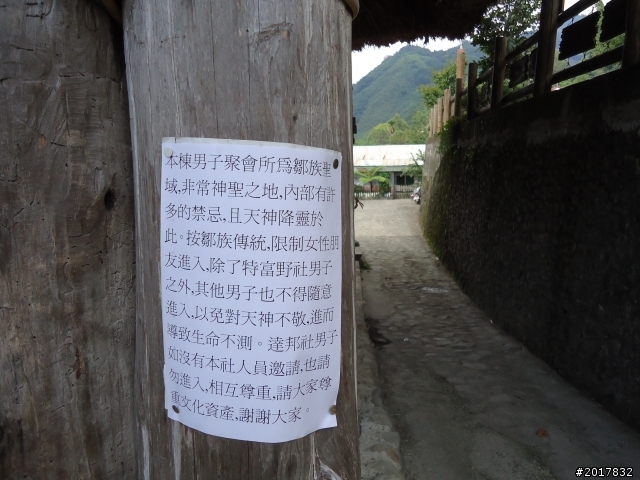 本棟男子聚會所為鄒族聖
域,非常神聖之地,內部有許
多的禁忌,且天神降靈於
此。按鄒族傳統,限制女性朋
友進入,除了特富野社男子
之外,其他男子也不得隨意
進入,以免對天神不敬,進而
導致生命不測。達邦社男子
如沒有本社人員邀請,也請
勿進入,相互尊重,請大家尊
重文化資產,謝謝大家。
#2017832